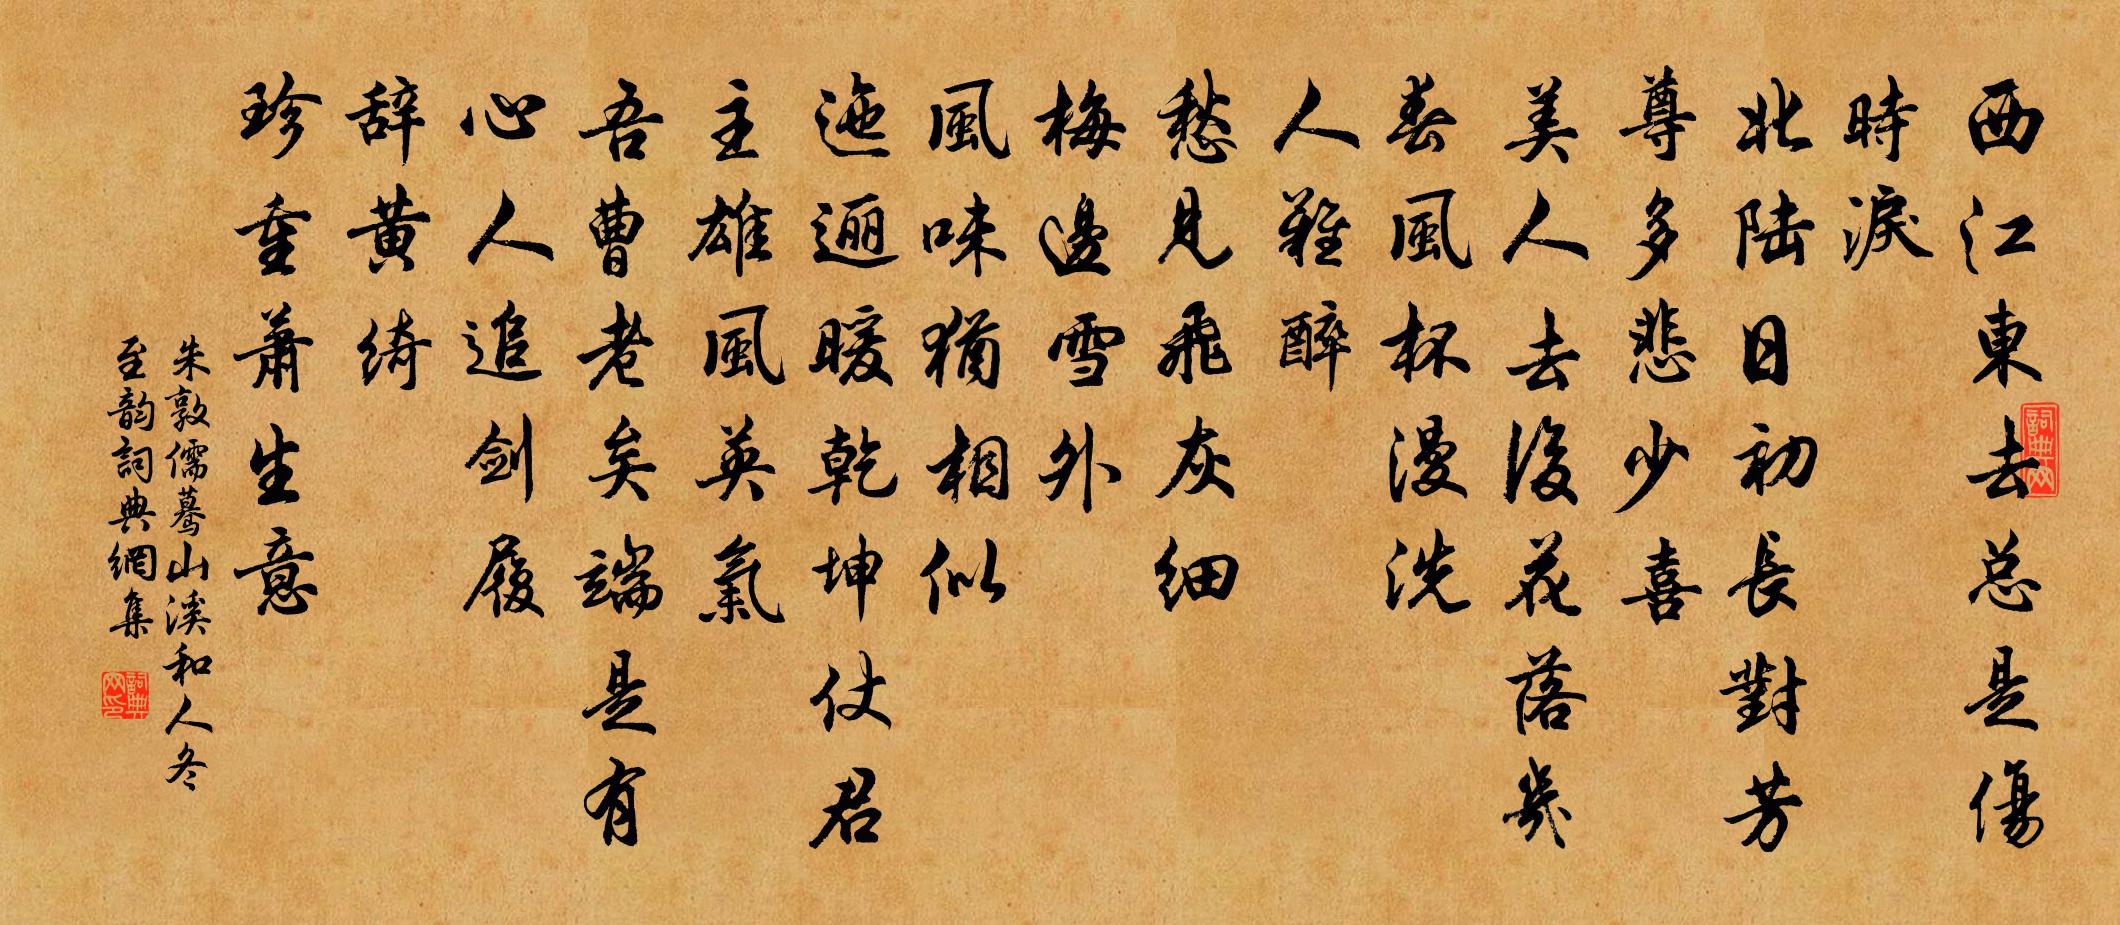 西江東去总是傷
時淚
北陆日初長對芳
尊多悲少喜
美人去後花落幾
春風杯漫洗
人難醉
愁見飛灰细
梅邊雪外
風味猶相似
迤逦暖乾坤仗君
主雄風英氣
吾曹老矣端是有
心人追剑履
辞黄绮
珍重萧生意
朱敦儒蓦山溪和人冬
至韵詞典網集
詞典网
詞典网印